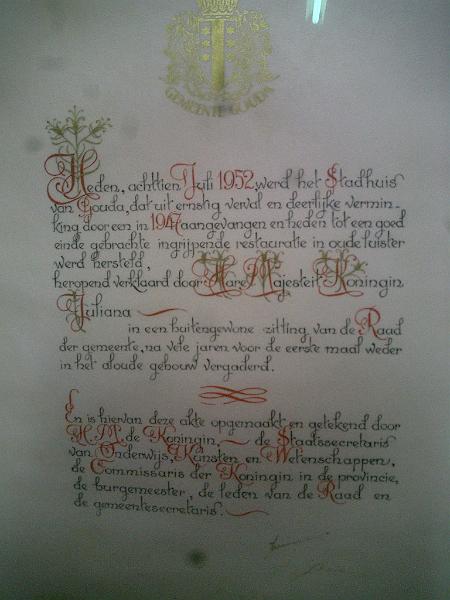 GEMEENTE GOUDA
Heden, achttien Juli 1952, werd het Stadhuis
van Gouda, dat uit ernstig verval en deerlijke vermin-
king door een in 1947 aangevangen en heden tot een goed
einde gebrachte ingrijpende restauratie in oude luister
werd hersteld,
heropend verklaard door Hare Majesteit Koningin
Juliana
in een buitengewone zitting van de Raad
der gemeente, na vele jaren voor de eerste maal weder
in het aloude gebouw vergaderd.
En is hiervan deze akte opgemaakt en getekend door
H.M. de Koningin, de Staatssecretaris
van Onderwijs, Kunsten en Wetenschappen,
de Commissaris der Koningin in de provincie,
de burgemeester, de leden van de Raad en
de gemeentesecretaris.